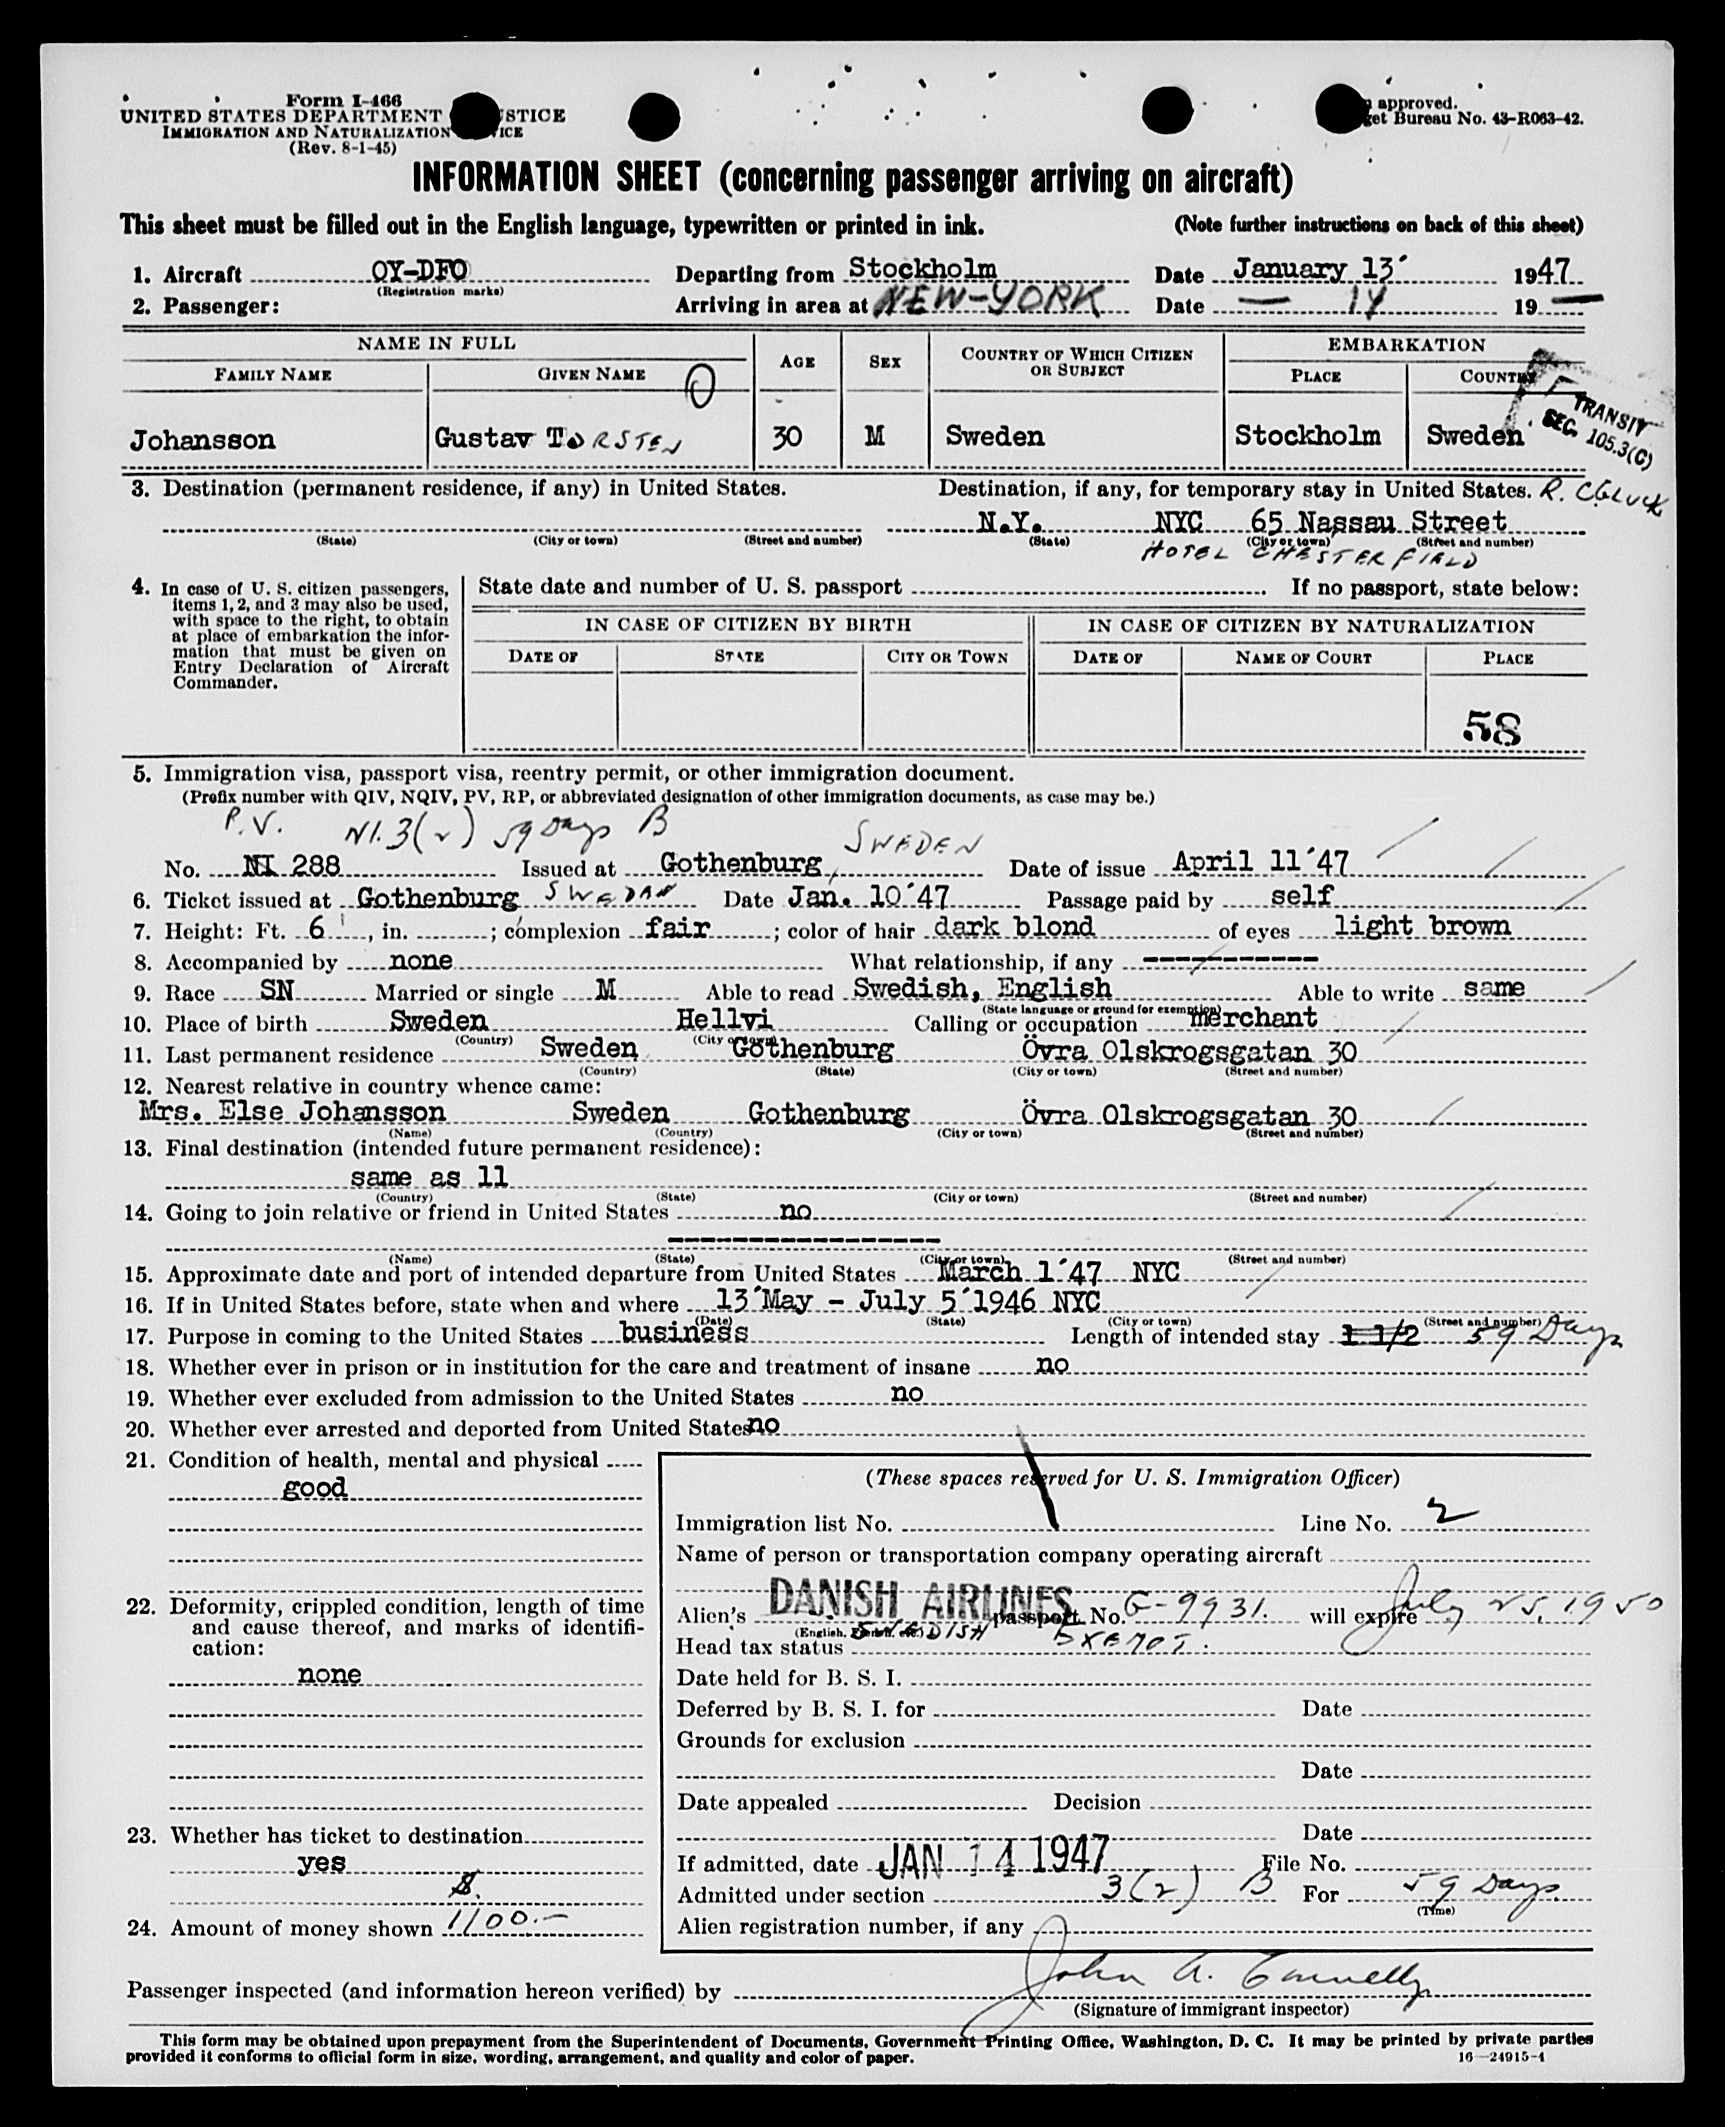 Form I-466
UNITED STATES DEPARTMENT STICE
IMMIGRATION AND NATURALIZATION ICE
(Rev. 8-1-45)
approved.
get Bureau No. 43-R063-42.
INFORMATION SHEET (concerning passenger arriving on aircraft)
This sheet must be filled out in the English language, typewritten or printed in ink. (Note further instructions on back of this sheet)
1. Aircraft OY-DFO Departing from Stockholm Date January 13´ 1947
(Registration marks)
2. Passenger: Arriving in area at NEW-YORK Date — 14 19 —
NAME IN FULL AGE SEX COUNTRY OF WHICH CITIZEN OR SUBJECT EMBARKATION
FAMILY NAME GIVEN NAME PLACE COUNTRY
O
TRANSIT
SEC. 105.3(C)
Johansson Gustav TORSTEN 30 M Sweden Stockholm Sweden
3. Destination (permanent residence, if any) in United States. Destination, if any, for temporary stay in United States. R. C. GLUCK
N.Y. NYC 65 Nassau Street
(State) (City or town) (Street and number) (State) (City or town) (Street and number)
HOTEL CHESTERFIELD
4. In case of U. S. citizen passengers, items 1, 2, and 3 may also be used, with space to the right, to obtain at place of embarkation the information that must be given on Entry Declaration of Aircraft Commander.
State date and number of U. S. passport If no passport, state below:
IN CASE OF CITIZEN BY BIRTH IN CASE OF CITIZEN BY NATURALIZATION
DATE OF STATE CITY OR TOWN DATE OF NAME OF COURT PLACE
58
5. Immigration visa, passport visa, reentry permit, or other immigration document.
(Prefix number with QIV, NQIV, PV, RP, or abbreviated designation of other immigration documents, as case may be.)
P.V. NI. 3(2) 59 Days B SWEDEN
No. NI 288 Issued at Gothenburg, Date of issue April 11´47
6. Ticket issued at Gothenburg SWEDEN Date Jan. 10´47 Passage paid by self
7. Height: Ft. 6, in. ; complexion fair ; color of hair dark blond of eyes light brown
8. Accompanied by none What relationship, if any ------------
9. Race SN Married or single M Able to read Swedish, English Able to write same
(State language or ground for exemption)
10. Place of birth Sweden Hellvi Calling or occupation merchant
(Country) (City or town)
11. Last permanent residence Sweden Gothenburg Övra Olskrogsgatan 30
(Country) (State) (City or town) (Street and number)
12. Nearest relative in country whence came:
Mrs. Else Johansson Sweden Gothenburg Övra Olskrogsgatan 30
(Name) (Country) (City or town) (Street and number)
13. Final destination (intended future permanent residence):
same as 11
(Country) (State) (City or town) (Street and number)
14. Going to join relative or friend in United States no
------------------
(Name) (State) (City or town) (Street and number)
15. Approximate date and port of intended departure from United States March 1´47 NYC
16. If in United States before, state when and where 13´May - July 5´1946 NYC
(Date) (State) (City or town) (Street and number)
17. Purpose in coming to the United States business Length of intended stay 1 1/2 59 Days
18. Whether ever in prison or in institution for the care and treatment of insane no
19. Whether ever excluded from admission to the United States no
20. Whether ever arrested and deported from United States no
21. Condition of health, mental and physical
good
22. Deformity, crippled condition, length of time and cause thereof, and marks of identification:
none
23. Whether has ticket to destination
yes
$.
24. Amount of money shown 1100.-
(These spaces reserved for U. S. Immigration Officer)
Immigration list No. Line No. 2
Name of person or transportation company operating aircraft
DANISH AIRLINES
Alien's passport No. G-9931. will expire July 25, 1950
(English, French, etc.) SWEDISH
Head tax status EXEMPT.
Date held for B. S. I.
Deferred by B. S. I. for Date
Grounds for exclusion
Date
Date appealed Decision
Date
If admitted, date JAN 14 1947 File No.
Admitted under section 3(2) B For 59 Days
(Time)
Alien registration number, if any
Passenger inspected (and information hereon verified) by John A. Connelly
(Signature of immigrant inspector)
This form may be obtained upon prepayment from the Superintendent of Documents, Government Printing Office, Washington, D. C. It may be printed by private parties
provided it conforms to official form in size, wording, arrangement, and quality and color of paper. 16—24915-4